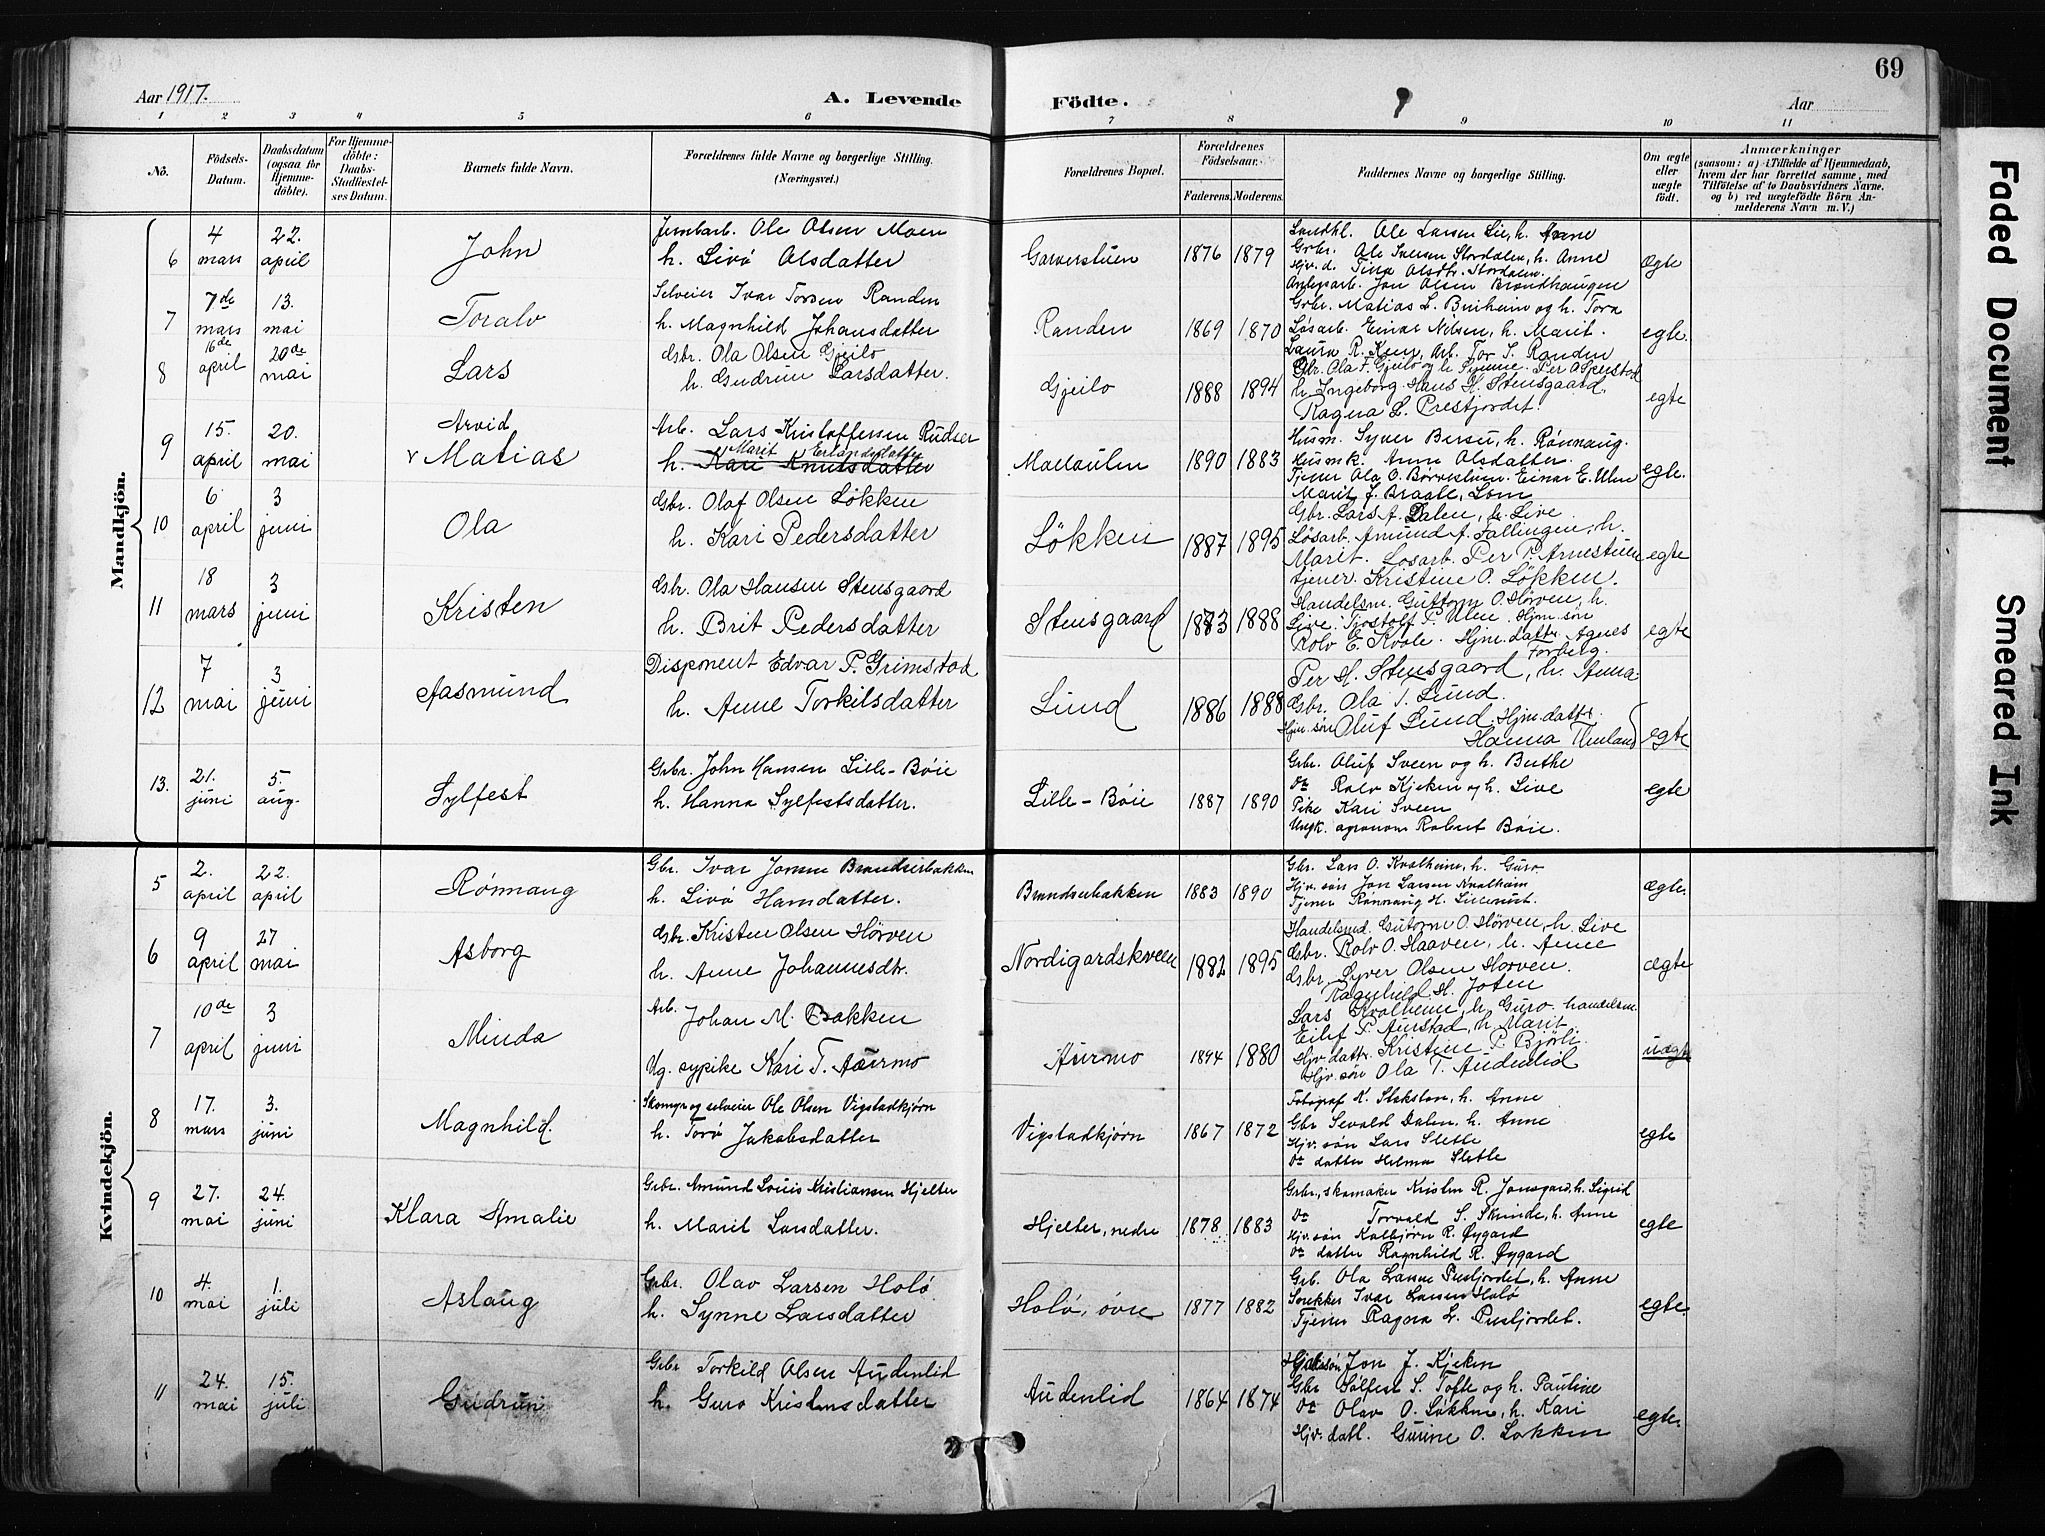 Aar 1917.
A. Levende Födte.
Aar
69
1 2 3 4 5 6 7 8 9 10 11
No.
Födsels-Datum.
Daabsdatum (ogsaa for Hjemme-döbte).
For Hjemme-döbte: Daabs-Stadfæstel-ses Datum.
Barnets fulde Navn.
Forældrenes fulde Navne og borgerlige Stilling. (Næringsvei.)
Forældrenes Bopæl.
Forældrenes Födselsaar.
Faderens. Moderens.
Faddernes Navne og borgerlige Stilling.
Om ægte eller uægte födt.
Anmærkninger
(saasom: a) i Tilfælde af Hjemmedaab, hvem der har forrettet samme, med Tilföielse af to Daabsvidners Navne. og b) ved uægtefödte Börn Anmelderens Navn m. V.)
Mandkjön.
6 4 mars 22. april John
Jernbarb. Ole Olsen Moen
h. Livö Olsdatter
Garverstuen 1876 1879
Landhl. Ole Larsen Lie, h. Anne
Grbr. Ole Iversen Stordalen, h. Anne
Hjv. d. Tina Olsdtr. Stordalen.
Anlegsarb. Jon Olsen Brændhaugen
Ægte
7 7de mars 13. mai Toralv
Selveier Ivar Torsen Randen
h. Magnhild Johansdatter
Randen 1869 1870
Grbr. Matias L. Bruheim og h. Tora
Løsarb. Einar Nilsen, h. Marit.
Laura R. Koen, Arb. Tor S. Randen
egte.
8 16de april 20de mai Lars
Gbr. Ola Olsen Gjeilo
h. Gudrun Larsdatter.
Gjeilo 1888 1894
Gbr. Ola F. Gjeilo og h. Synne. Per O Sperstad
h Ingeborg. Hans H. Stensgaard.
Ragna L. Prestjordet.
egte
9 15. april 20. mai Arvid
Matias
Arb. Lars Kristoffersen Rudser
Marit Erlandsdatter
h. Kari Knutsdatter
1890 1883
Husm. Syver Bersu, h. Rønnaug.
Husmk. Anne Olsdatter.
Tjener Ola O. Børvestuen. Einar E. Ulen
Marit J. Braate, Lom
egte.
10 6 april 3 juni Ola
Gbr. Olaf Olsen Løkken
h. Kari Pedersdatter
Løkken 1887 1895
Gbr. Lars A. Dalen, h. Live.
Løsarb. Amund A. Fallingen, h.
Marit. Løsarb. Per P. Arnestuen
tjener. Kristine O. Løkken.
egte
11 18 mars 3 juni Kristen
Gbr. Ola Hansen Stensgaard
h. Brit Pedersdatter
Stensgaard 1883 1888
Handelsm. Guttorm O. Hørven, h.
Live. Tjostolf P. Ulen. Hjm. søn
Rolv E. Kvale. Hjm. dattr. Agnes
Forberg.
egte
12 7 mai 3 juni Aasmund
Disponent Edvar P. Grimstad
h. Anne Torkilsdatter
Lund 1886 1888
Per H. Stensgaard, h. Anna
Gbr. Ola T. Lund.
Hjm. søn Oluf Lund. Hjm. dattr.
Hanna
egte
13. 21. juni 5. aug. Sylfest
Grbr. John Hansen Lille-Bøie
h. Hanna Sylfestsdatter.
Lille-Bøie 1887 1890
Grbr. Oluf Sveen og h. Berthe
Do Rolv Kjeken og h. Live
Pike Kari Sveen
Ungk. agronom Robert Bøie.
egte
Kvindekjön.
5 2. april 22. april Rønnaug
Gbr. Ivar Jonsen Brandserbakken
h. Livö Hansdatter.
Brandserbakken 1883 1890
Gbr. Lars O. Kvalheim, h. Guro
Hjv. søn Jon Larsen Kvalheim
Tjener Rønnaug H. Lillerust.
Ægte.
6 9 april 27 mai Asborg
Gbr. Kristen Olsen Hørven
h. Anne Johannesdtr.
Nordigardskveen 1882 1895
Handelsmd. Gutorm O. Hørven, h. Live
Gbr. Rolv O. Haaven, h. Anne
Gbr. Syver Olsen Hørven.
Ragnhild H. Joten
ægte
7 10de april 3 juni Minda
Arb. Johan M. Bakken
Ug. sypike Kari T. Aurmo
Aurmo 1894 1880
Lars Kvalheim, h. Guro. handelsm.
Eilef P. Aurstad, h. Marit
Hjv. dattr. Kristine P. Bjørli.
Hjv. søn Ola T. Audenlid
uægte
8 17. mars 3. juni Magnhild.
Skomgr og selveier Ole Olsen Vigstadkjørn
h. Torø Jakobsdatter
Vigstadkjørn 1867 1872
Fotograf K. Stokstan, h. Anne
Gbr Sevald Dalen, h. Anne
Hjv. søn Lars Slette
Do datter Helma Slette
egte
9 27. mai 24. juni Klara Amalie
Grbr. Amund Louis Kristiansen Hjelter
h. Marit Larsdatter.
Hjelter, nedre 1878 1883
Grbr., skomaker Kristen R. Jonsgard, h. Sigrid
Do Torvald S. Skrinde, h. Anne
Hjv. søn Kolbjørn R. Øygard
Do datter Ragnhild R. Øygard
egte
10 4. mai 1. juli Aslaug
Grbr. Olav Larsen Holø
h. Synne Larsdatter
Holø, øvre 1877 1882
Grb. Ola Larsen Prestjordet, h. Anne
Snekker Ivar Larsen Holø
Tjener Ragna L. Prestjordet.
egte.
11 24. mai 15. juli Gudrun
Grbr Torkild Olsen Audenlid
h. Guro Kristensdatter
Audenlid 1864 1874
Jon J. Kjeken
Gbr Sølfest S. Tofte og h. Pauline
Do Olav O. Løkken, h. Kari
Hjv. datt. Gurine O. Løkken
egte.
Faded Document
Smeared Ink